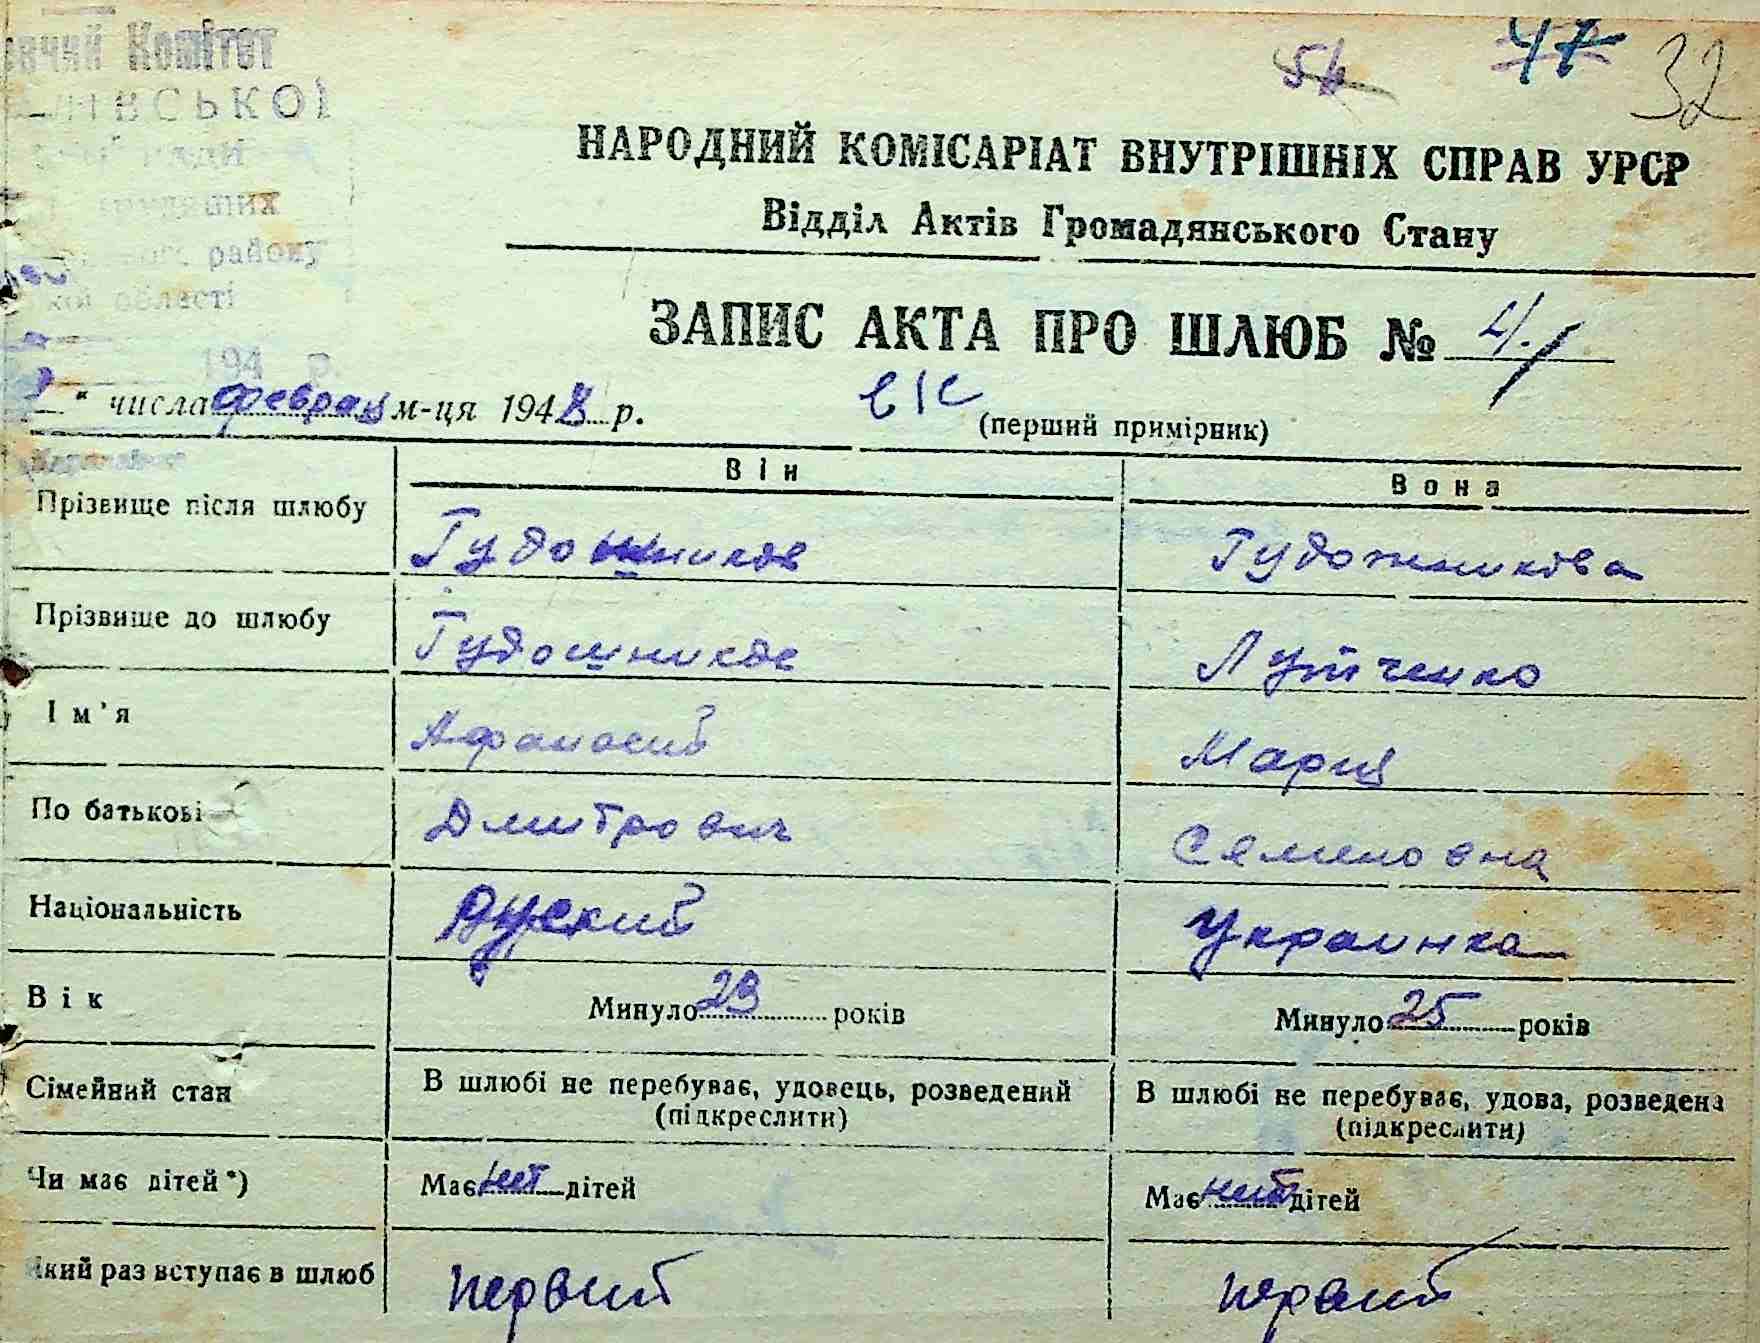 Комітет
54 47 32
району
області
194 р.
НАРОДНИЙ КОМІСАРІАТ ВНУТРІШНІХ СПРАВ УРСР
Відділ Актів Громадянського Стану
ЗАПИС АКТА ПРО ШЛЮБ № 4.
" числа февраля м-ця 1948 р.
(перший примірник)
Він Вона
Прізвище після шлюбу Гудошников Гудожникова
Прізвище до шлюбу Гудошников Лутченко
Ім'я Афанасий Мария
По батькові Дмитрович Семеновна
Національність Руский Украинка
Вік Минуло 23 років Минуло 25 років
Сімейний стан В шлюбі не перебуває, удовець, розведений В шлюбі не перебуває, удова, розведена
(підкреслити) (підкреслити)
Чи має дітей*) Має нет дітей Має нет дітей
Який раз вступає в шлюб первий первий